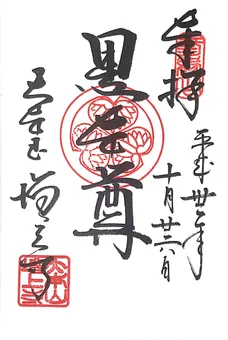 奉拝
平成廿二年
十月廿六日
黒本尊
大本山
増上寺